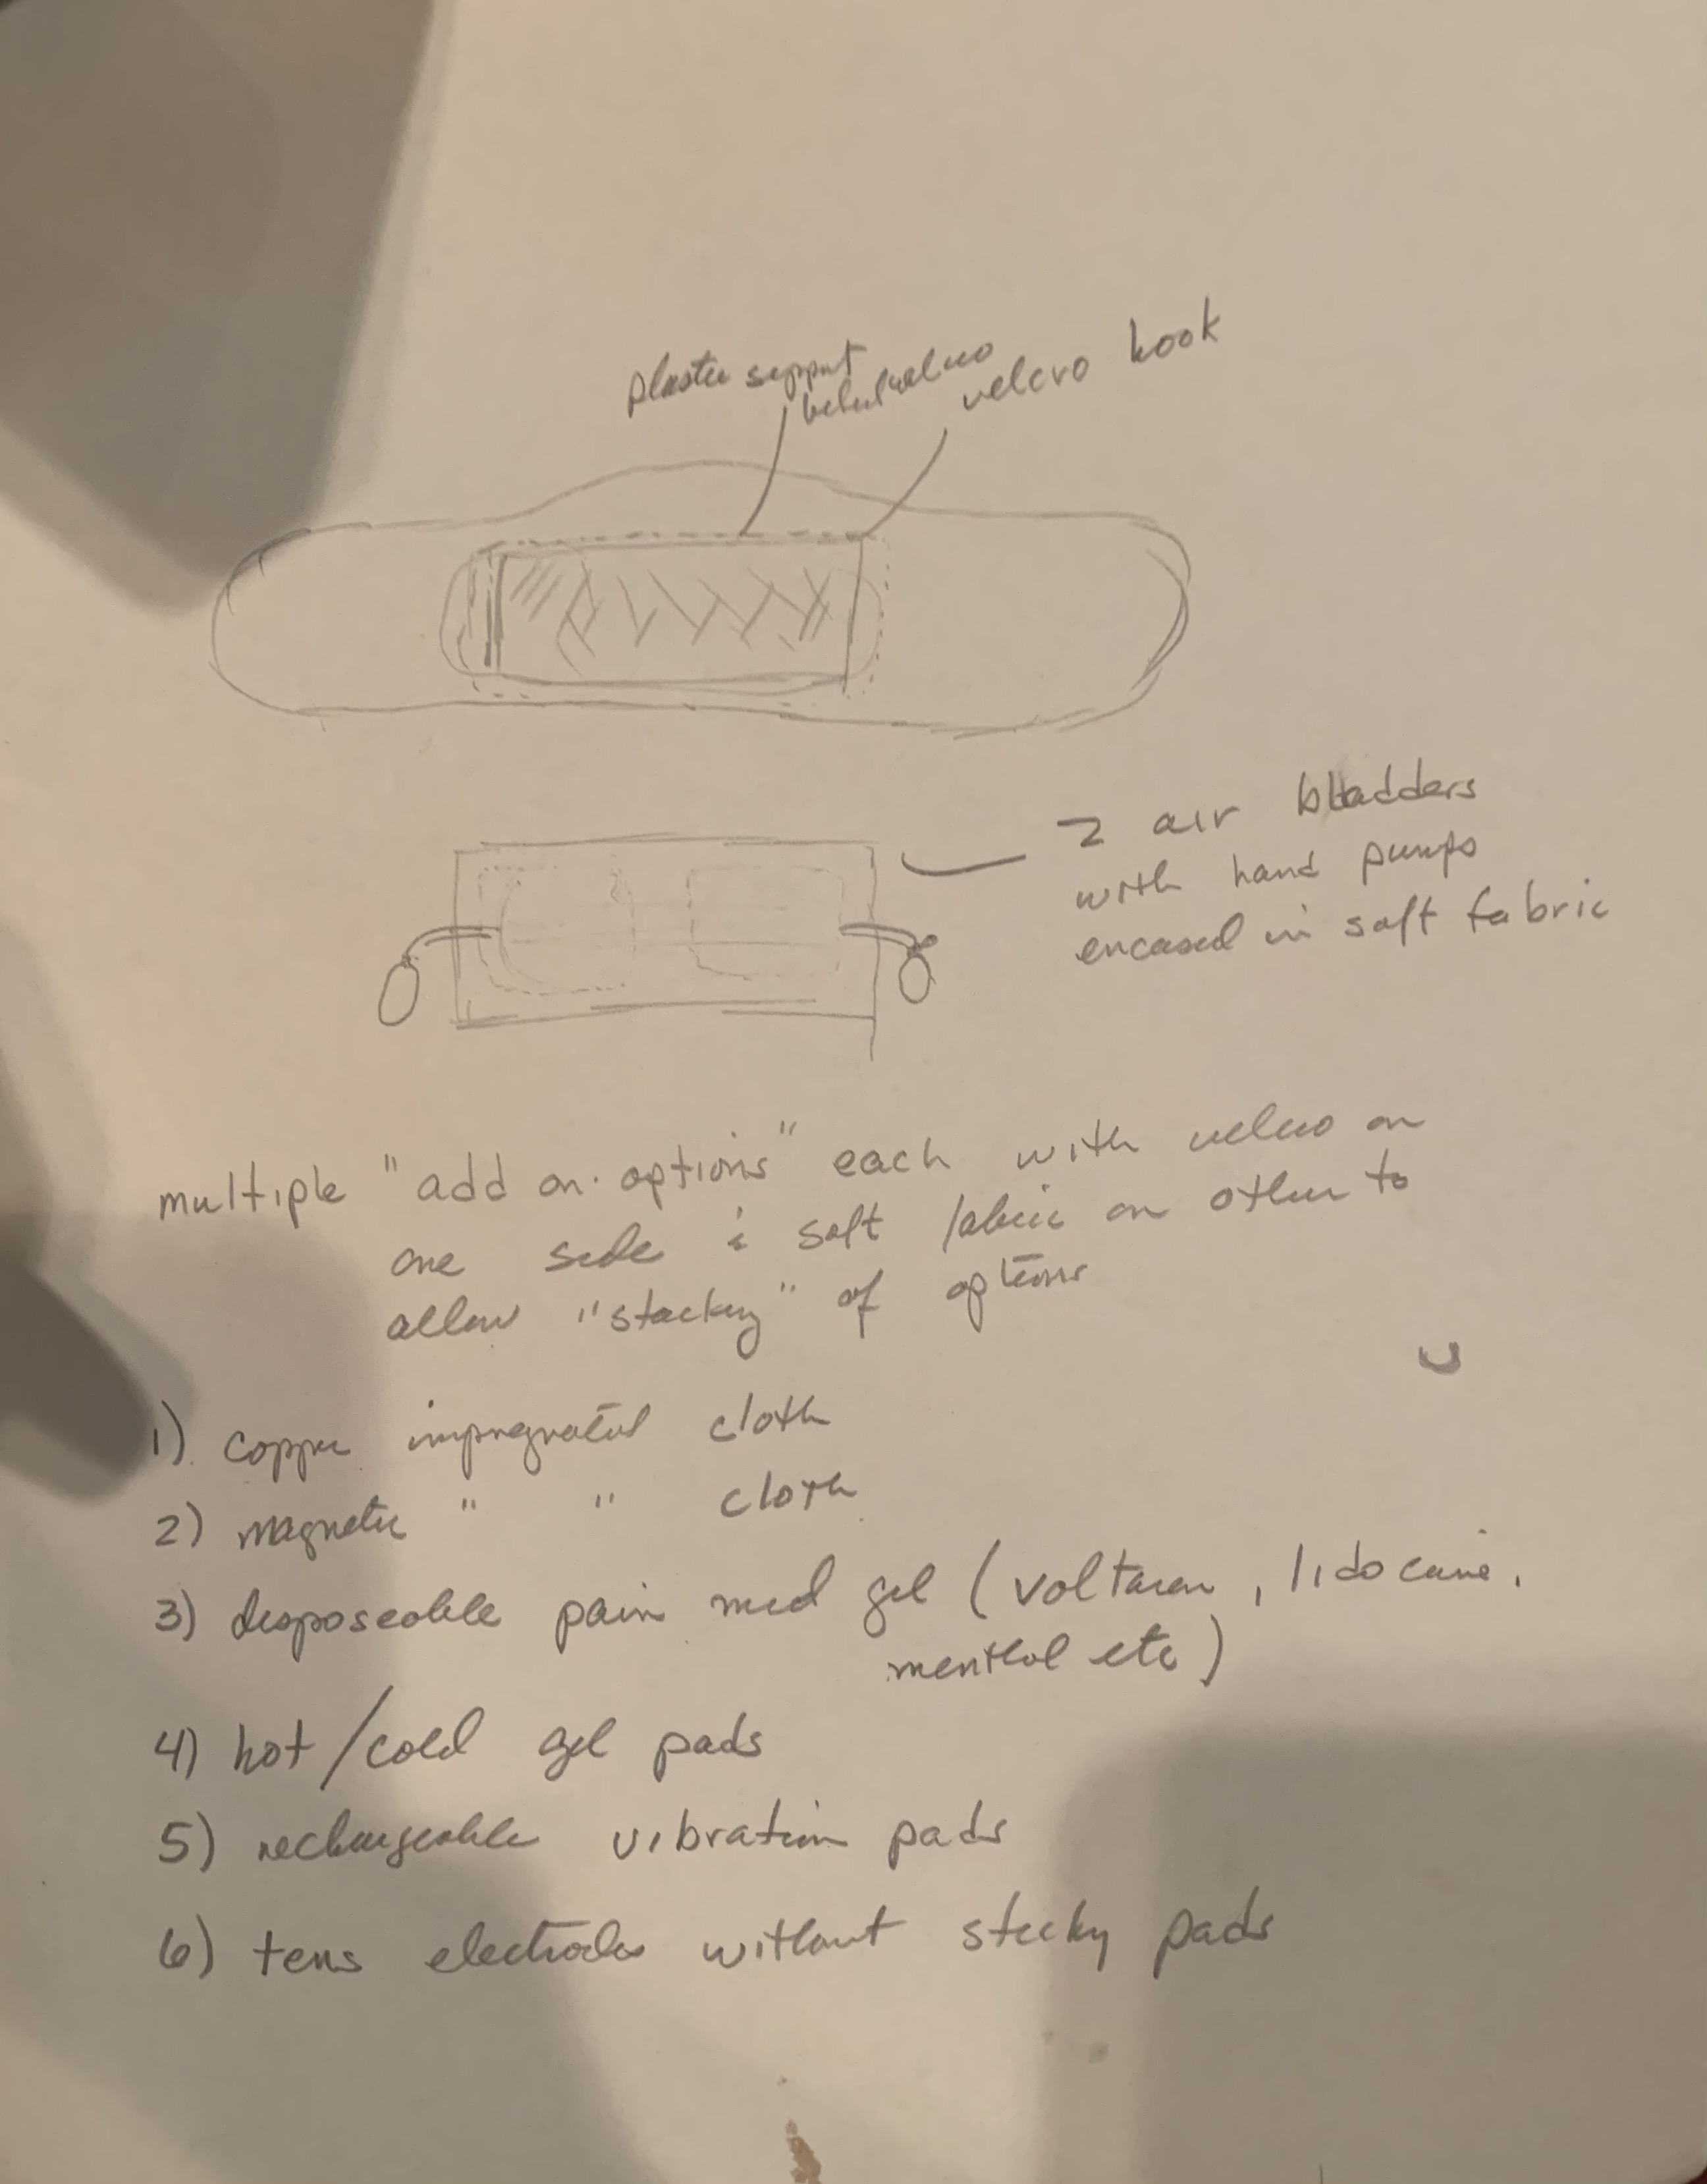 plastic support
behind velcro
velcro hook
2 air bladders
with hand pumps
encased in soft fabric
multiple "add on options" each with velcro on
one side & soft fabric on other to
allow "stacking" of options
1) copper impregnated cloth
2) magnetic " " cloth
3) disposeable pain med gel (voltaren, lidocaine,
menthol etc)
4) hot/cold gel pads
5) rechargeable vibration pads
6) tens electrodes without sticky pads